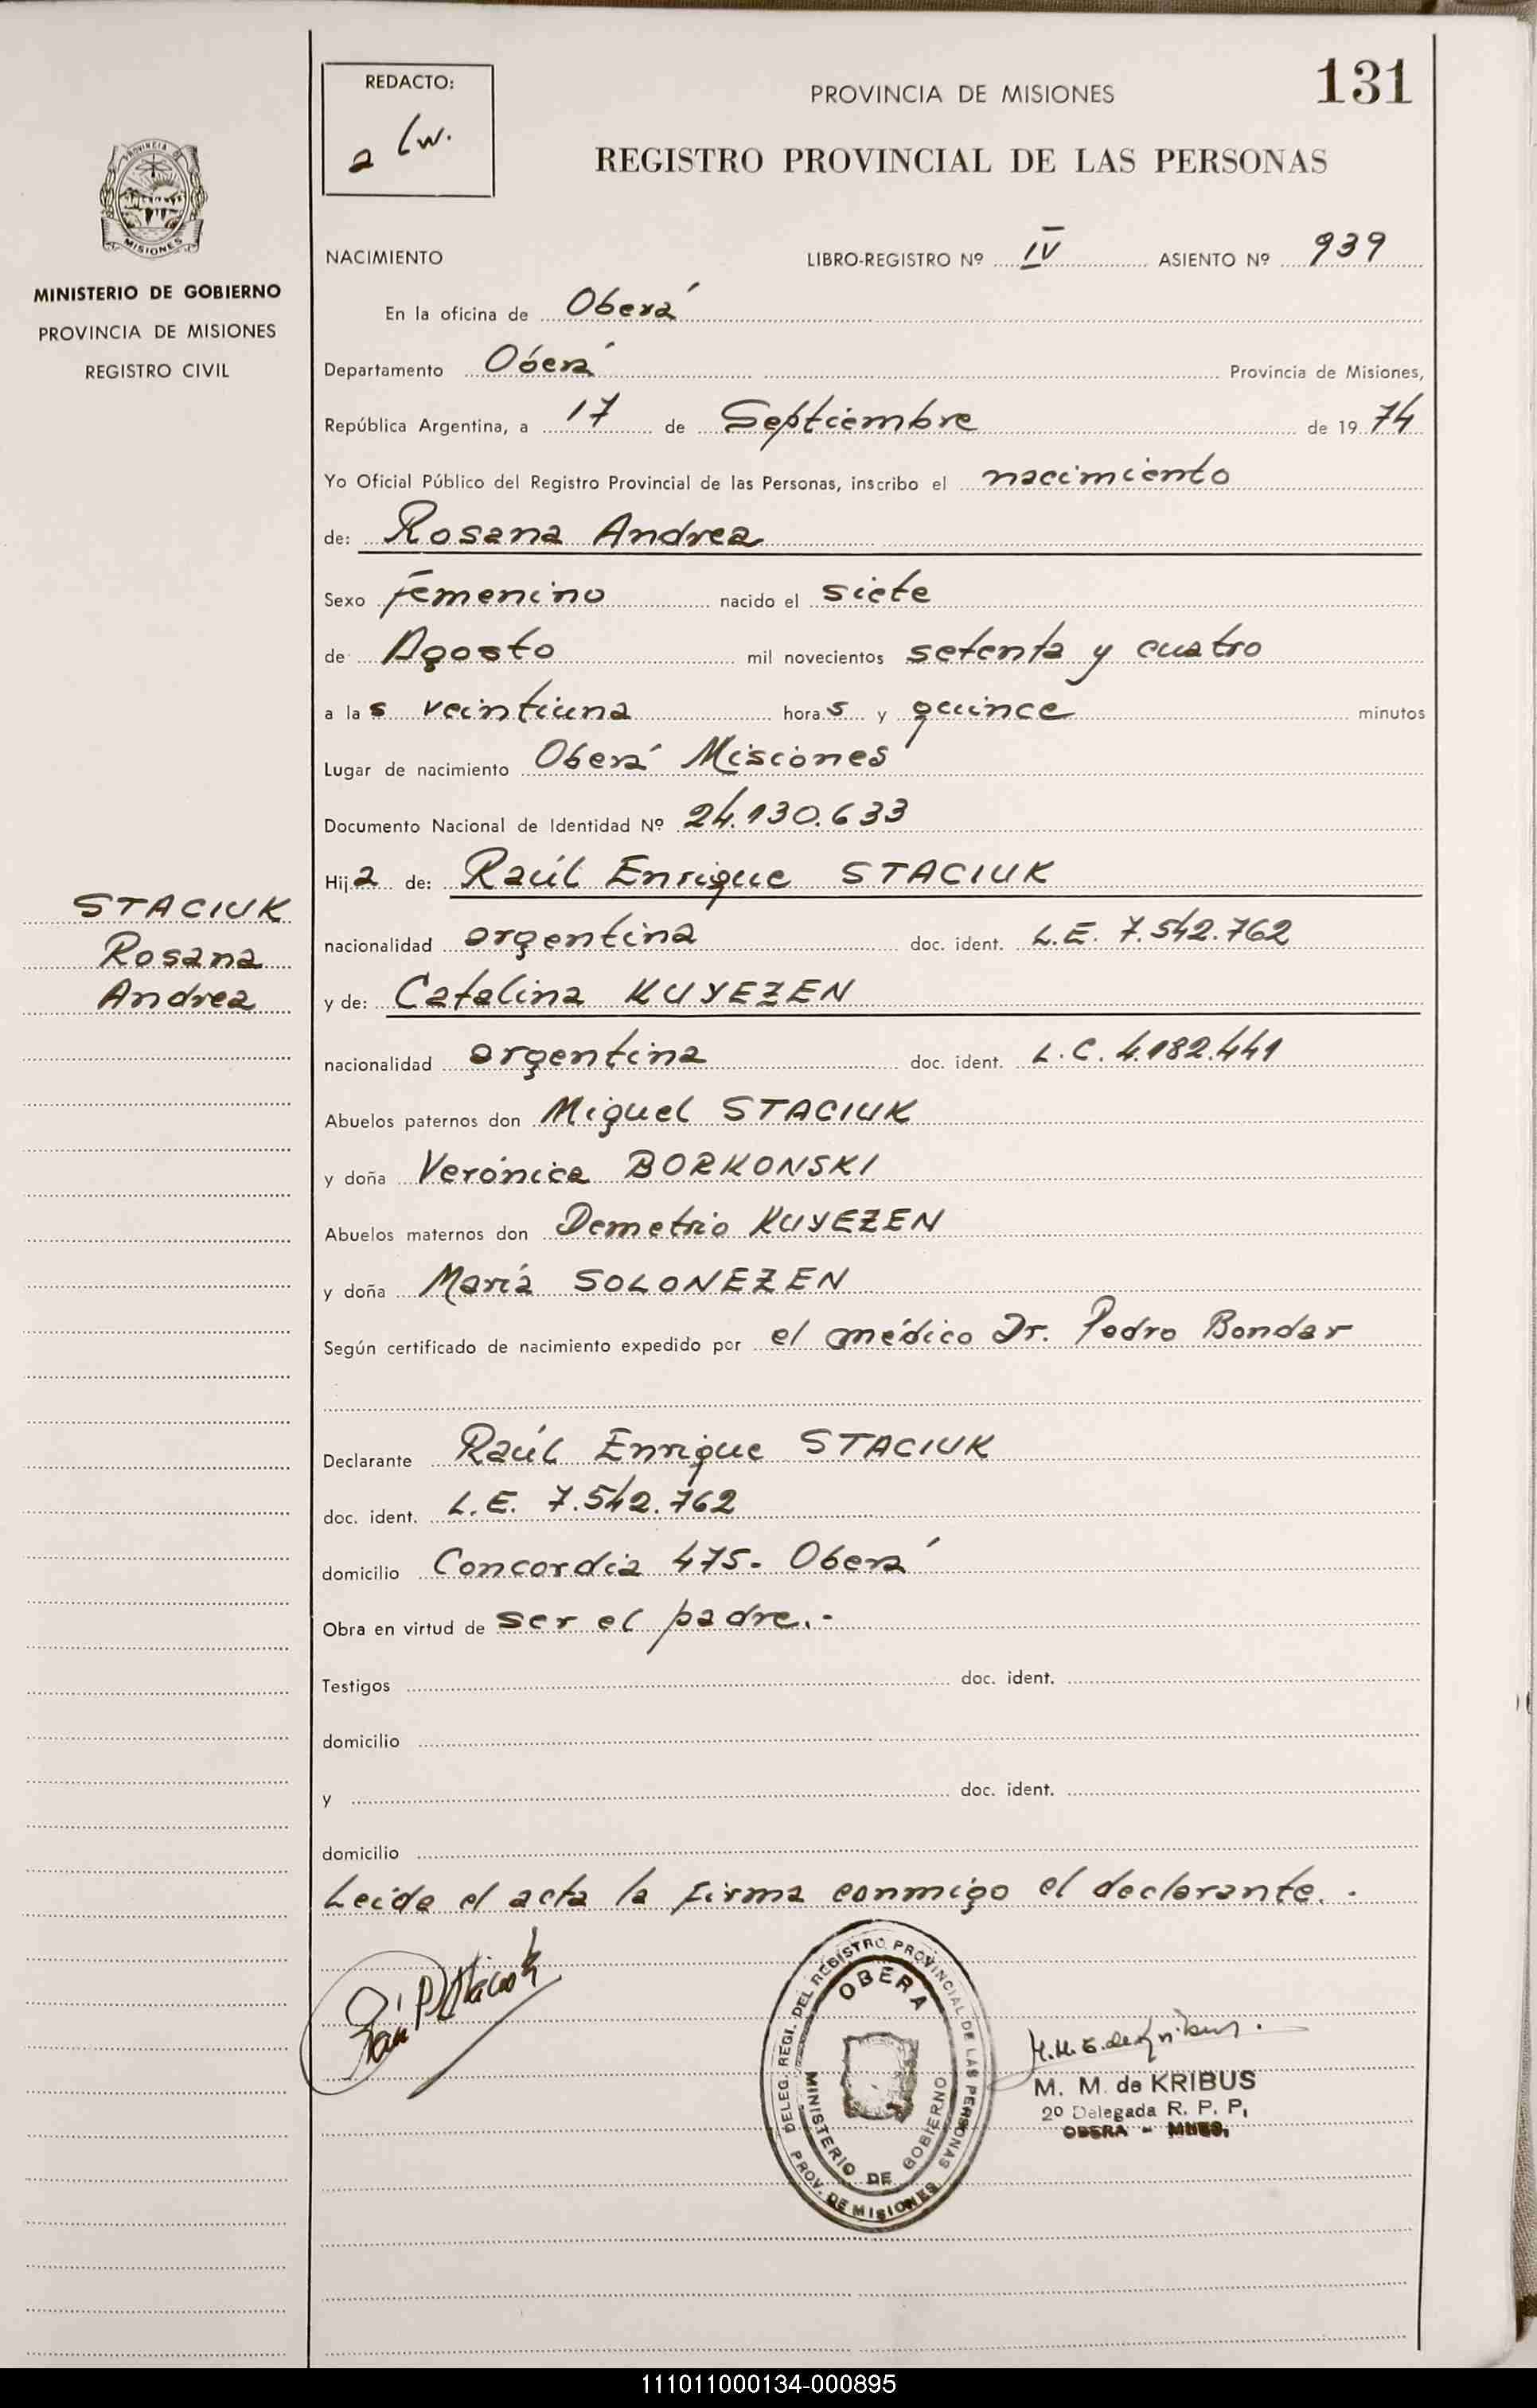 REDACTO:
PROVINCIA DE MISIONES
131
REGISTRO PROVINCIAL DE LAS PERSONAS
PROVINCIA DE
MISIONES
MINISTERIO DE GOBIERNO
PROVINCIA DE MISIONES
REGISTRO CIVIL
NACIMIENTO LIBRO-REGISTRO Nº IV ASIENTO Nº 939
En la oficina de Oberá
Departamento Oberá Provincia de Misiones,
República Argentina, a 17 de Septiembre de 1974
Yo Oficial Público del Registro Provincial de las Personas, inscribo el nacimiento
de: Rosana Andrea
Sexo femenino nacido el siete
de Agosto mil novecientos setenta y cuatro
a las veintiuna horas y quince minutos
Lugar de nacimiento Oberá Misiones
Documento Nacional de Identidad Nº 24.130.633
Hija de: Raúl Enrique STACIUK
STACIUK
Rosana
Andrea
nacionalidad argentina doc. ident. L.E. 7.542.762
y de: Catalina KUYEZEN
nacionalidad argentina doc. ident. L.C. 4.182.441
Abuelos paternos don Miguel STACIUK
y doña Verónica BORKONSKI
Abuelos maternos don Demetrio KUYEZEN
y doña María SOLONEZEN
Según certificado de nacimiento expedido por el médico Dr. Pedro Bondar
Declarante Raúl Enrique STACIUK
doc. ident. L.E. 7.542.762
domicilio Concordia 475- Oberá
Obra en virtud de ser el padre.-
Testigos doc. ident.
domicilio
y doc. ident.
domicilio
Leida el acta la firma conmigo el declarante.-
DELEG. REGI. DEL REGISTRO PROVINCIAL DE LAS PERSONAS
OBERA
MINISTERIO DE GOBIERNO
PROV. DE MISIONES
M. M. de KRIBUS
2º Delegada R. P. P,
OBERA - MNES,
111011000134-000895